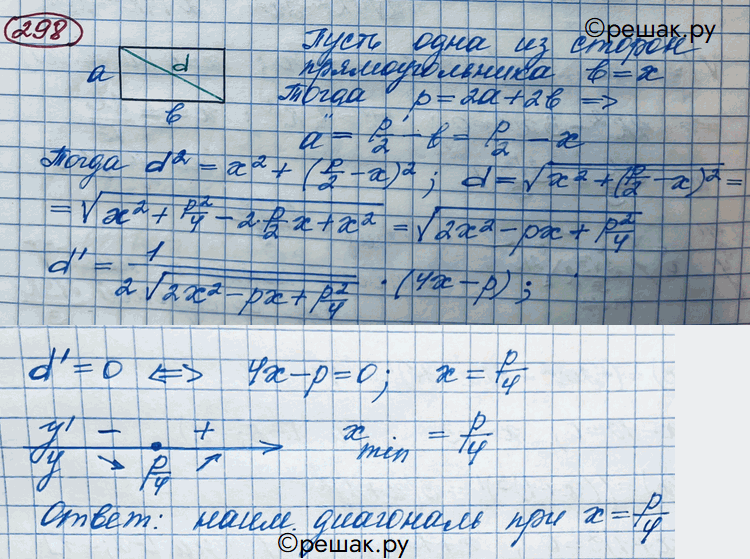 298
©решак.ру
a d
в
Пусть одна из сторон
прямоугольника в = x
Тогда p = 2a + 2в =>
a = p/2 - в = p/2 - x
Тогда d² = x² + (p/2 - x)²; d = √(x² + (p/2 - x)²) =
= √(x² + p²/4 - 2·p/2 x + x²) = √(2x² - px + p²/4)
d' = 1/(2√(2x² - px + p²/4)) · (4x - p);
d' = 0 <=> 4x - p = 0; x = p/4
y' - + x min = p/4
y ↘ p/4 ↗
Ответ: наим. диагональ при x = p/4
©решак.ру